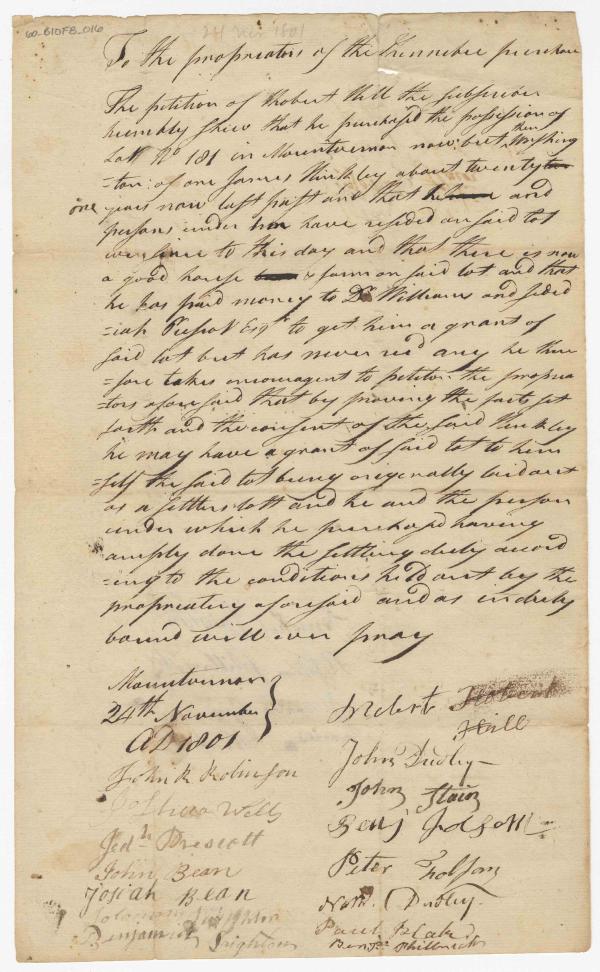 60-B10F8-016
24 Nov 1801
To the propriators of the Kennebec purchase
The petition of Robert Hill the subscriber
humbly shew that he purchased the possession of
Lott No 181 in Mountvernon now but then Washing
=ton: of one James Hinkley about twenty
one years now last past and that he and
persons under him have resided on said lot
ever since to this day and that there is now
a good house & farm on said lot and that
he has paid money to Dr Williams and Jedid
=iah Prescot Esqr to get him a grant of
said lot but has never recd any he there
=fore takes encouragent to petiton the propria
=tors aforesaid that by proving the facts set
forth and the consent of the said Hinkley
he may have a grant of said lot to him
=self the said lot being originally laid out
as a settlers lott and he and the person
under which he purchased having
amply done the settling duty accord
=ing to the conditions held out by the
propriatery aforesaid and as in duty
bound will ever pray
Mountvernon
24th November
AD 1801
Robert
Hill
John Dudley
John Stain
Benj
Peter Folsom
Nath. Dudley
Paul Blake
Benja. Philbrick
John R Robinson
Joshua Wells
Jedh Prescott
John Bean
Josiah Bean
Solomon Leighton
Benjamin Leighton